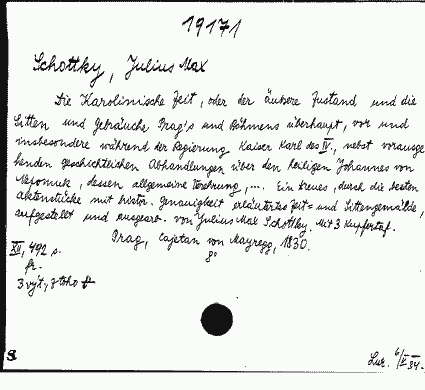 19171
Schottky, Julius Max
Die Karolinische Zeit, oder der äußere Zustand und die
Sitten und Gebräuche Prag's und Böhmens überhaupt, vor und
insbesondere während der Regierung Kaiser Karl des IV., nebst vorausge
henden geschichtlichen Abhandlungen über den heiligen Johannes von
Nepomuk, dessen allgemeine Verehrung, .... Ein treues, durch die besten
Aktenstücke mit histor. Genauigkeit erläutertes Zeit= und Sittengemälde,
aufgestellt und ausgearb. von Julius Max Schottky. Mit 3 Kupfertaf.
Prag, Cajetan von Mayregg, 1830.
XII, 492 s.
8°
fr.
3 výt., z toho
S
Lur. 6/V 34.